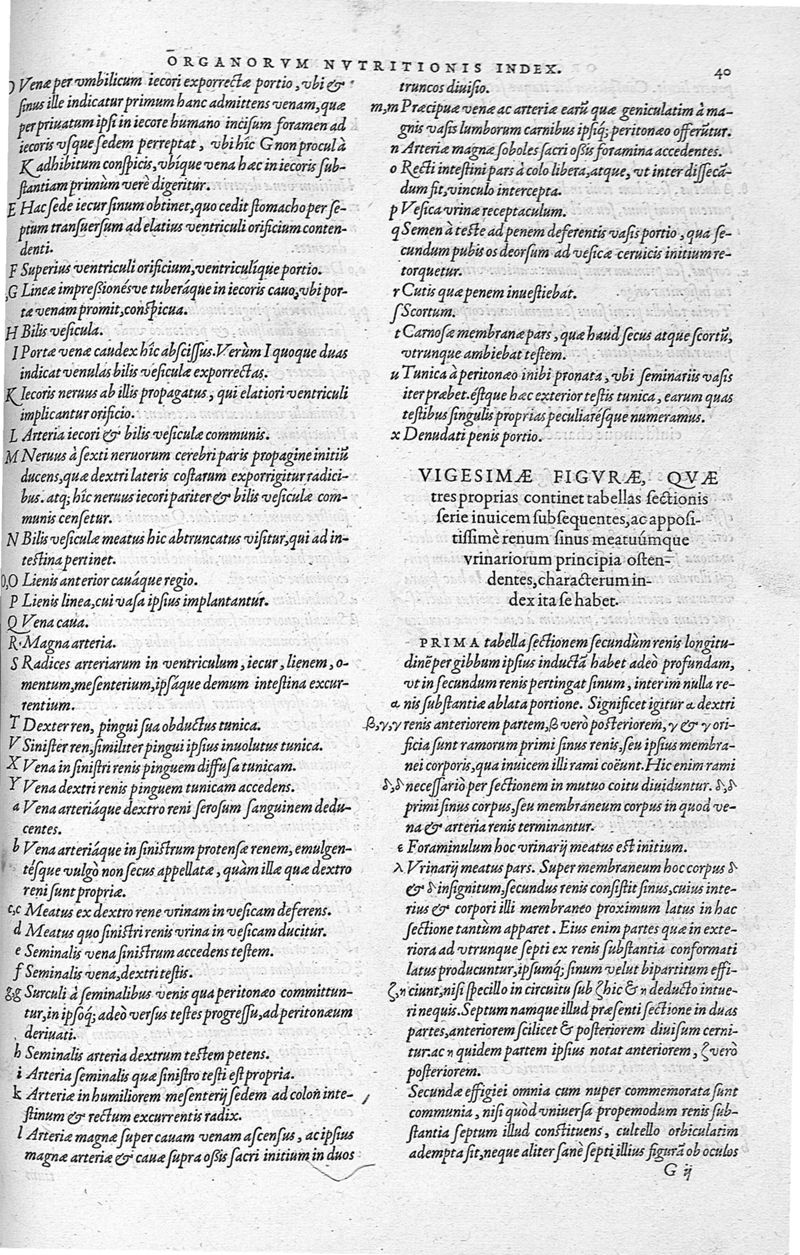 ORGANORVM NVTRITIONIS INDEX.
40
D Venæ per vmbilicum iecori exporrectæ portio, vbi &
sinus ille indicatur primum hanc admittens venam, quæ
per priuatum ipsi in iecore humano incisum foramen ad
iecoris vsque sedem perreptat, vbi hîc G non procul à
K adhibitum conspicis, vbíque vena hæc in iecoris sub-
stantiam primùm verè digeritur.
E Hac sede iecur sinum obtinet, quo cedit stomacho per se-
ptum transuersum ad elatius ventriculi orificium conten-
denti.
F Superius ventriculi orificium, ventriculíque portio.
G,G Lineæ impreßionésve tuberáque in iecoris cauo, vbi por-
tæ venam promit, conspicua.
H Bilis vesicula.
I Portæ venæ caudex hîc abscissus. Verùm I quoque duas
indicat venulas bilis vesiculæ exporrectas.
K Iecoris neruus ab illis propagatus, qui elatiori ventriculi
implicantur orificio.
L Arteria iecori & bilis vesiculæ communis.
M Neruus à sexti neruorum cerebri paris propagine initiū
ducens, quæ dextri lateris costarum exporrigitur radici-
bus. atq; hic neruus iecori pariter & bilis vesiculæ com-
munis censetur.
N Bilis vesiculæ meatus hic abtruncatus visitur, qui ad in-
testina pertinet.
O,O Lienis anterior cauáque regio.
P Lienis linea, cui vasa ipsius implantantur.
Q Vena caua.
R Magna arteria.
S Radices arteriarum in ventriculum, iecur, lienem, o-
mentum, mesenterium, ipsáque demum intestina excur-
rentium.
T Dexter ren, pingui sua obductus tunica.
V Sinister ren, similiter pingui ipsius inuolutus tunica.
X Vena in sinistri renis pinguem diffusa tunicam.
Y Vena dextri renis pinguem tunicam accedens.
a Vena arteriáque dextro reni serosum sanguinem dedu-
centes.
b Vena arteriáque in sinistrum protensæ renem, emulgen-
tésque vulgò non secus appellatæ, quàm illæ quæ dextro
reni sunt propriæ.
c,c Meatus ex dextro rene vrinam in vesicam deferens.
d Meatus quo sinistri renis vrina in vesicam ducitur.
e Seminalis vena sinistrum accedens testem.
f Seminalis vena, dextri testis.
g,g Surculi à seminalibus venis quæ peritonæo committun-
tur, in ipsoq; adeò versus testes progressu, ad peritonæum
deriuati.
h Seminalis arteria dextrum testem petens.
i Arteria seminalis quæ sinistro testi est propria.
k Arteriæ in humiliorem mesenterij sedem ad colon inte-
stinum & rectum excurrentis radix.
l Arteriæ magnæ super cauam venam ascensus, ac ipsius
magnæ arteriæ & cauæ supra oßis sacri initium in duos
truncos diuisio.
m,m Præcipuæ venæ ac arteriæ earū quæ geniculatim à ma-
gnis vasis lumborum carnibus ipsíq; peritonæo offerūtur.
n Arteriæ magnæ soboles sacri oßis foramina accedentes.
o Recti intestini pars à colo libera, atque, vt inter dissecā-
dum fit, vinculo intercepta.
p Vesica vrinæ receptaculum.
q Semen à teste ad penem deferentis vasis portio, qua se-
cundum pubis os deorsum ad vesicæ ceruicis initium re-
torquetur.
r Cutis quæ penem inuestiebat.
ſ Scortum.
t Carnosæ membranæ pars, quæ haud secus atque scortū,
vtrunque ambiebat testem.
u Tunica à peritonæo inibi pronata, vbi seminariis vasis
iter præbet. éstque hæc exterior testis tunica, earum quas
testibus singulis proprias peculiarésque numeramus.
x Denudati penis portio.
VIGESIMÆ FIGVRÆ, QVÆ
tres proprias continet tabellas sectionis
serie inuicem subsequentes, ac apposi-
tissimè renum sinus meatuúmque
vrinariorum principia osten-
dentes, characterum in-
dex ita se habet.
PRIMA tabella sectionem secundùm renis longitu-
dinē per gibbum ipsius inductā habet adeò profundam,
vt in secundum renis pertingat sinum, interim nulla re-
α nis substantiæ ablata portione. Significet igitur α dextri
β,γ,γ renis anteriorem partem, β verò posteriorem, γ & γ ori-
ficia sunt ramorum primi sinus renis, seu ipsius membra-
nei corporis, qua inuicem illi rami coëunt. Hic enim rami
δ,δ necessariò per sectionem in mutuo coitu diuiduntur. δ,δ
primi sinus corpus, seu membraneum corpus in quod ve-
na & arteria renis terminantur.
ε Foraminulum hoc vrinarij meatus est initium.
λ Vrinarij meatus pars. Super membraneum hoc corpus δ
& δ insignitum, secundus renis consistit sinus, cuius inte-
rius & corpori illi membraneo proximum latus in hac
sectione tantùm apparet. Eius enim partes quæ in exte-
riora ad vtrunque septi ex renis substantia conformati
latus producuntur, ipsumq; sinum velut bipartitum effi-
ζ,η ciunt, nisi specillo in circuitu sub ζ hic & η deducto intue-
ri nequis. Septum namque illud præsenti sectione in duas
partes, anteriorem scilicet & posteriorem diuisum cerni-
tur. ac η quidem partem ipsius notat anteriorem, ζ verò
posteriorem.
Secundæ effigiei omnia cum nuper commemorata sunt
communia, nisi quòd vniuersa propemodum renis sub-
stantia septum illud constituens, cultello orbiculatim
adempta sit, neque aliter sanè septi illius figurā ob oculos
G ij